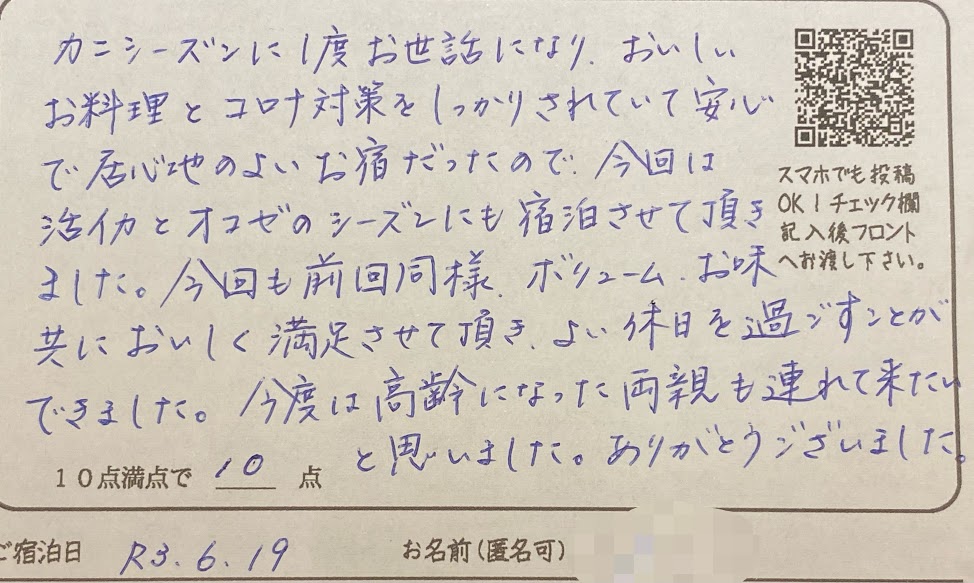 カニシーズンに1度お世話になり、おいしい
お料理とコロナ対策をしっかりされていて安心
で居心地のよいお宿だったので、今回は
活イカとオコゼのシーズンにも宿泊させて頂き
ました。今回も前回同様、ボリューム、お味
共においしく満足させて頂き、よい休日を過ごすことが
できました。今度は高齢になった両親も連れて来たい
と思いました。ありがとうございました。
スマホでも投稿
OK！チェック欄
記入後フロント
へお渡し下さい。
10点満点で 10 点
ご宿泊日 R3.6.19 お名前(匿名可)